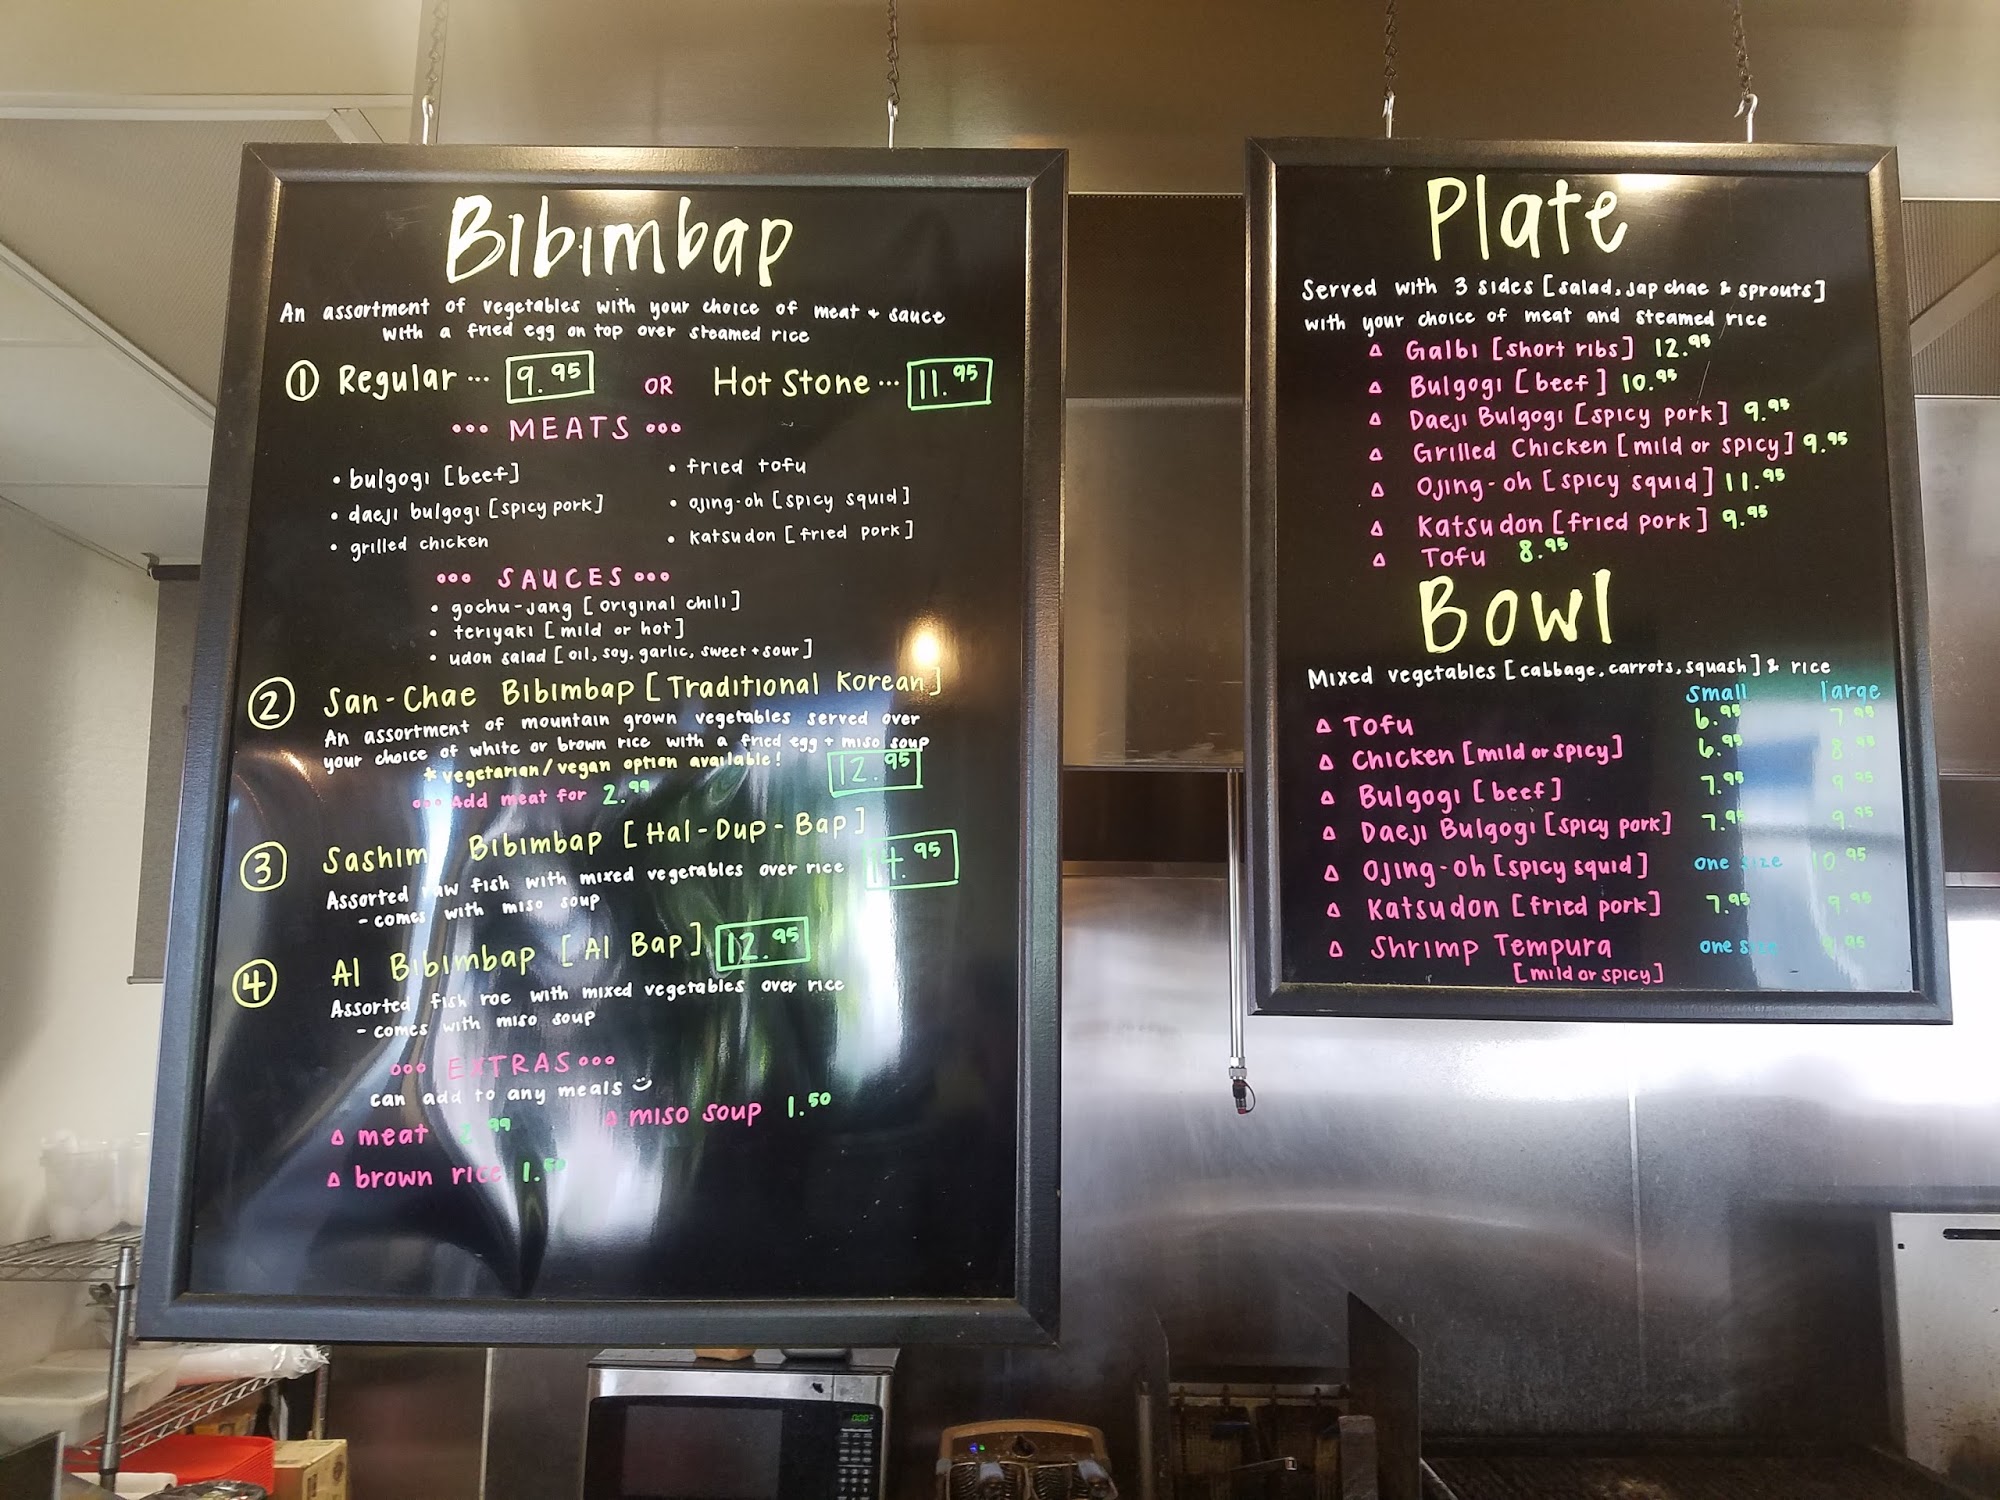 Bibimbap
An assortment of vegetables with your choice of meat + sauce
with a fried egg on top over steamed rice
① Regular ... 9.95 OR Hot Stone ... 11.95
°°° MEATS °°°
• bulgogi [beef]
• daeji bulgogi [spicy pork]
• grilled chicken
• fried tofu
• ojing-oh [spicy squid]
• katsudon [fried pork]
°°° SAUCES °°°
• gochu-jang [original chili]
• teriyaki [mild or hot]
• udon salad [oil, soy, garlic, sweet + sour]
② San-Chae Bibimbap [Traditional Korean]
An assortment of mountain grown vegetables served over
your choice of white or brown rice with a fried egg + miso soup
* vegetarian/vegan option available! 12.95
°°° Add meat for 2.99
③ Sashimi Bibimbap [Hal-Dup-Bap]
Assorted raw fish with mixed vegetables over rice 14.95
- comes with miso soup
④ Al Bibimbap [Al Bap] 12.95
Assorted fish roe with mixed vegetables over rice
- comes with miso soup
°°° EXTRAS °°°
can add to any meals
△ meat 2.99
△ miso soup 1.50
△ brown rice 1.50
Plate
Served with 3 sides [salad, jap chae & sprouts]
with your choice of meat and steamed rice
△ Galbi [short ribs] 12.95
△ Bulgogi [beef] 10.95
△ Daeji Bulgogi [spicy pork] 9.95
△ Grilled Chicken [mild or spicy] 9.95
△ Ojing-oh [spicy squid] 11.95
△ Katsudon [fried pork] 9.95
△ Tofu 8.95
Bowl
Mixed vegetables [cabbage, carrots, squash] & rice
small large
△ Tofu 6.95 7.95
△ Chicken [mild or spicy] 6.95 8.95
△ Bulgogi [beef] 7.95 9.95
△ Daeji Bulgogi [spicy pork] 7.95 9.95
△ Ojing-oh [spicy squid] one size 10.95
△ Katsudon [fried pork] 7.95 9.95
△ Shrimp Tempura one size
[mild or spicy]